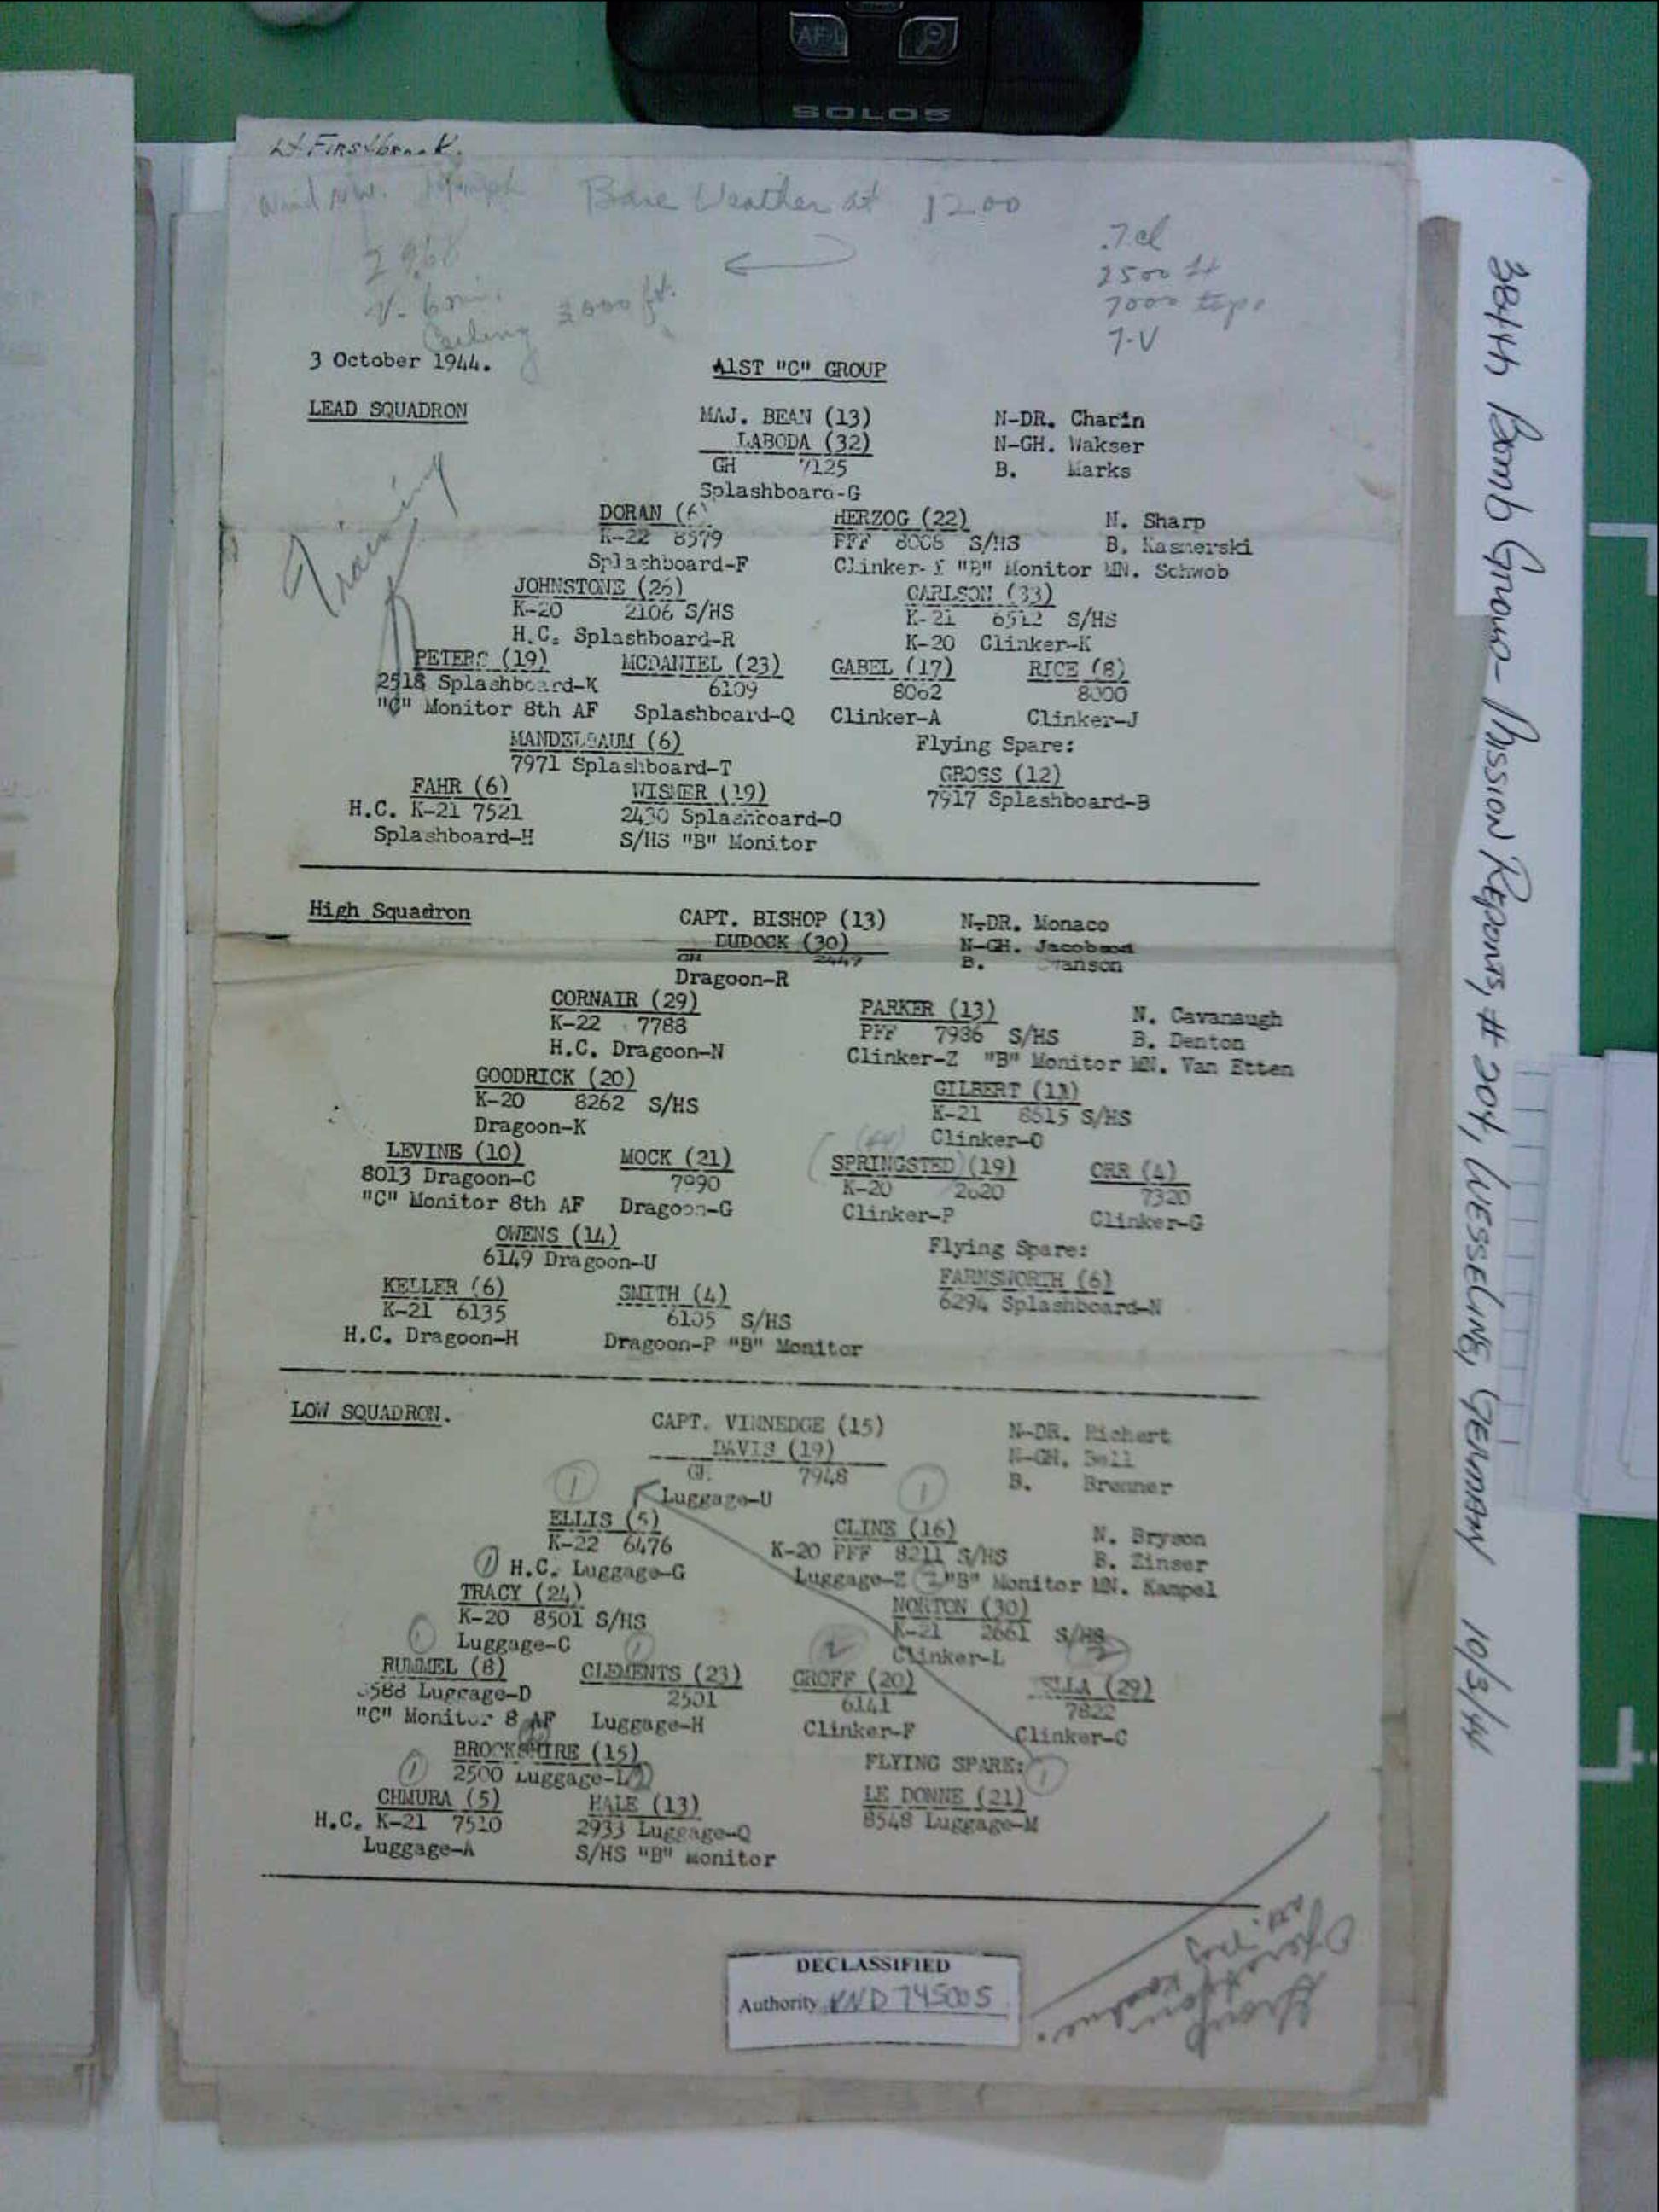 AF-L
SOLO5
Lt Firstbrook.
Wind NW. Base Weather at 1200
2968
V- 6 mi.
Ceiling 3000 ft.
.7 cl
2500 ft
7000 tops
7-V
3 October 1944. 41ST "C" GROUP
LEAD SQUADRON MAJ. BEAN (13) N-DR. Charin
LABODA (32) N-GH. Wakser
GH 7125 B. Marks
Splashboard-G
Training
DORAN (6) HERZOG (22) N. Sharp
K-22 8579 PFF 8008 S/HS B. Kasnerski
Splashboard-F Clinker- "B" Monitor MN. Schwob
JOHNSTONE (26) CARLSON (33)
K-20 2106 S/HS K-21 6512 S/HS
H.C. Splashboard-R K-20 Clinker-K
PETERS (19) MCDANIEL (23) GABEL (17) RICE (8)
2518 Splashboard-K 6109 8062 8000
"C" Monitor 8th AF Splashboard-Q Clinker-A Clinker-J
MANDELBAUM (6) Flying Spare:
7971 Splashboard-T GROSS (12)
FAHR (6) WISMER (19) 7917 Splashboard-B
H.C. K-21 7521 2430 Splashboard-O
Splashboard-H S/HS "B" Monitor
High Squadron CAPT. BISHOP (13) N-DR. Monaco
DUDOCK (30) N-GH. Jacobson
GH 2447 B.
Dragoon-R
CORNAIR (29) PARKER (13) N. Cavanaugh
K-22 7788 PFF 7936 S/HS B. Denton
H.C. Dragoon-N Clinker-Z "B" Monitor MN. Van Etten
GOODRICK (20) GILBERT (13)
K-20 8262 S/HS K-21 8615 S/HS
Dragoon-K Clinker-O
LEVINE (10) MOCK (21) SPRINGSTED (19) ORR (4)
8013 Dragoon-C 7990 K-20 2620 7320
"C" Monitor 8th AF Dragoon-G Clinker-P Clinker-G
OWENS (14) Flying Spare:
6149 Dragoon-U FARNSWORTH (6)
KELLER (6) SMITH (4) 6294 Splashboard-N
K-21 6135 6105 S/HS
H.C. Dragoon-H Dragoon-P "B" Monitor
LOW SQUADRON. CAPT. VINNEDGE (15) N-DR. Richert
DAVIS (19) N-GH. Bell
GH 7948 B. Brenner
1 Luggage-U 1
ELLIS (5) CLINE (16) N. Bryson
K-22 6476 K-20 PFF 8211 S/HS B. Zinser
1 H.C. Luggage-G Luggage-Z 2 "B" Monitor MN. Kampel
TRACY (24) NORTON (30)
K-20 8501 S/HS K-21 2661 S/HS
1 Luggage-C 1 2 Clinker-L 2
RUMMEL (8) CLEMENTS (23) GROFF (20) (29)
Luggage-D 2501 6141 7822
"C" Monitor 8 AF Luggage-H Clinker-F Clinker-C
BROCKSHIRE (15) FLYING SPARE: 1
1 2500 Luggage-L
CHMURA (5) HALE (13) LE DONNE (21)
H.C. K-21 7510 2933 Luggage-Q 8548 Luggage-M
Luggage-A S/HS "B" Monitor
Group
Operations
DECLASSIFIED
Authority NND 745005
384th Bomb Group - Mission Reports, # 204, WESSELING, GERMANY 10/3/44